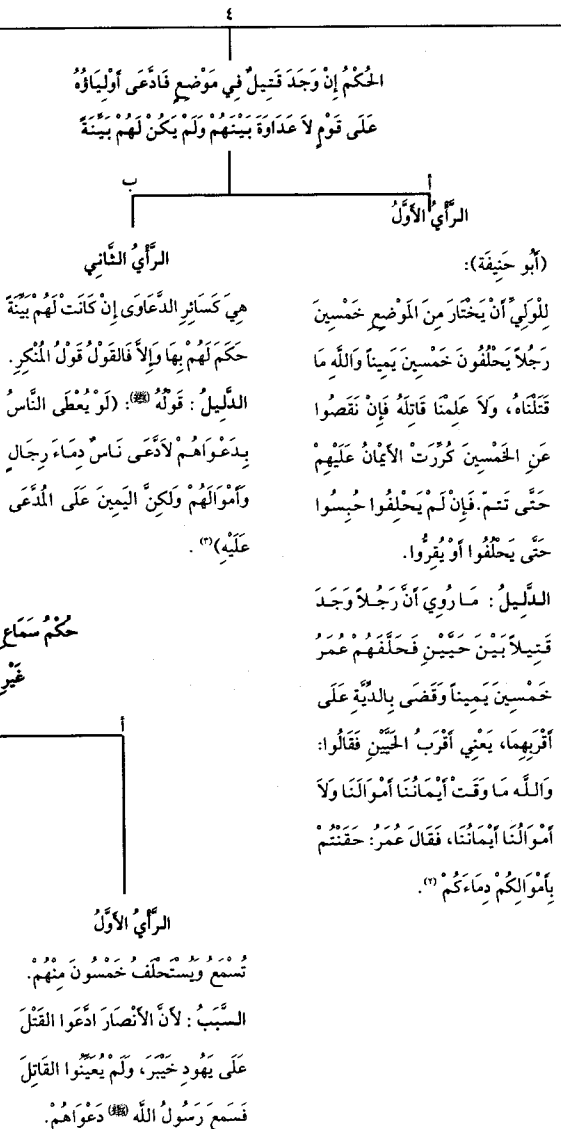 ٤
الحُكْمُ إِنْ وَجَدَ قَتِيلٌ فِي مَوْضعٍ فَادَّعَى أَوْلِيَاؤُهُ
عَلَى قَوْمٍ لاَ عَدَاوَةَ بَيْنَهُمْ وَلَمْ يَكُنْ لَهُمْ بَيِّنَةً
أ
الرَّأْيُ الأَوَّلُ
(أَبُو حَنِيفَة):
لِلْوَلِيِّ أَنْ يَخْتَارَ مِنَ المَوْضعِ خَمْسِينَ
رَجُلاً يَحْلُفُونَ خَمْسِينَ يَمِيناً وَاللَّهِ مَا
قَتَلْنَاهُ، وَلاَ عَلِمْنَا قَاتِلَهُ فَإِنْ نَقَصُوا
عَنِ الخَمْسِينَ كُرِّرَتْ الأَيْمَانُ عَلَيْهِمْ
حَتَّى تَتمّ. فَإِنْ لَمْ يَحْلِفُوا حُبِسُوا
حَتَّى يَحْلُفُوا أَوْ يُقِرُّوا.
الدَّلِيلُ: مَا رُوِيَ أَنَّ رَجُلاً وَجَدَ
قَتِيلاً بَيْنَ حَيَّيْنِ فَحَلَّفَهُمْ عُمَرُ
خَمْسِينَ يَمِيناً وَقَضَى بِالدِّيَّةِ عَلَى
أَقْرَبِهِمَا، يَعْنِي أَقْرَبُ الحَيَّيْنِ فَقَالُوا:
وَاللَّه مَا وَقَتْ أَيْمَانُنَا أَمْوَالَنَا وَلاَ
أَمْوَالُنَا أَيْمَانُنَا، فَقَالَ عُمَرُ: حَقَنْتُمْ
بِأَمْوَالِكُمْ دِمَاءَكُمْ (٢).
ب
الرَّأْيُ الثَّانِي
هِيَ كَسَائِرِ الدَّعَاوَى إِنْ كَانَتْ لَهُمْ بَيِّنَةً
حَكَمَ لَهُمْ بِهَا وَإِلاَّ فَالقَوْلُ قَوْلُ المُنْكِرِ.
الدَّلِيلُ: قَوْلُهُ (ﷺ): (لَوْ يُعْطَى النَّاسُ
بِدَعْوَاهُمْ لاَدَّعَى نَاسٌ دِمَاءَ رِجَالٍ
وَأَمْوَالَهُمْ وَلَكِنَّ اليَمِينَ عَلَى المُدَّعَى
عَلَيْهِ)(٣).
حُكْمُ سَمَاعِ
غَيْرِ
أ
الرَّأْيُ الأَوَّلُ
تُسْمَعُ وَيُسْتَحْلَفُ خَمْسُونَ مِنْهُمْ.
السَّبَبُ: لأَنَّ الأَنْصَارَ ادَّعَوا القَتْلَ
عَلَى يَهُودِ خَيْبَرَ، وَلَمْ يُعَيِّنُوا القَاتِلَ
فَسَمعَ رَسُولُ اللَّه (ﷺ) دَعْوَاهُمْ.